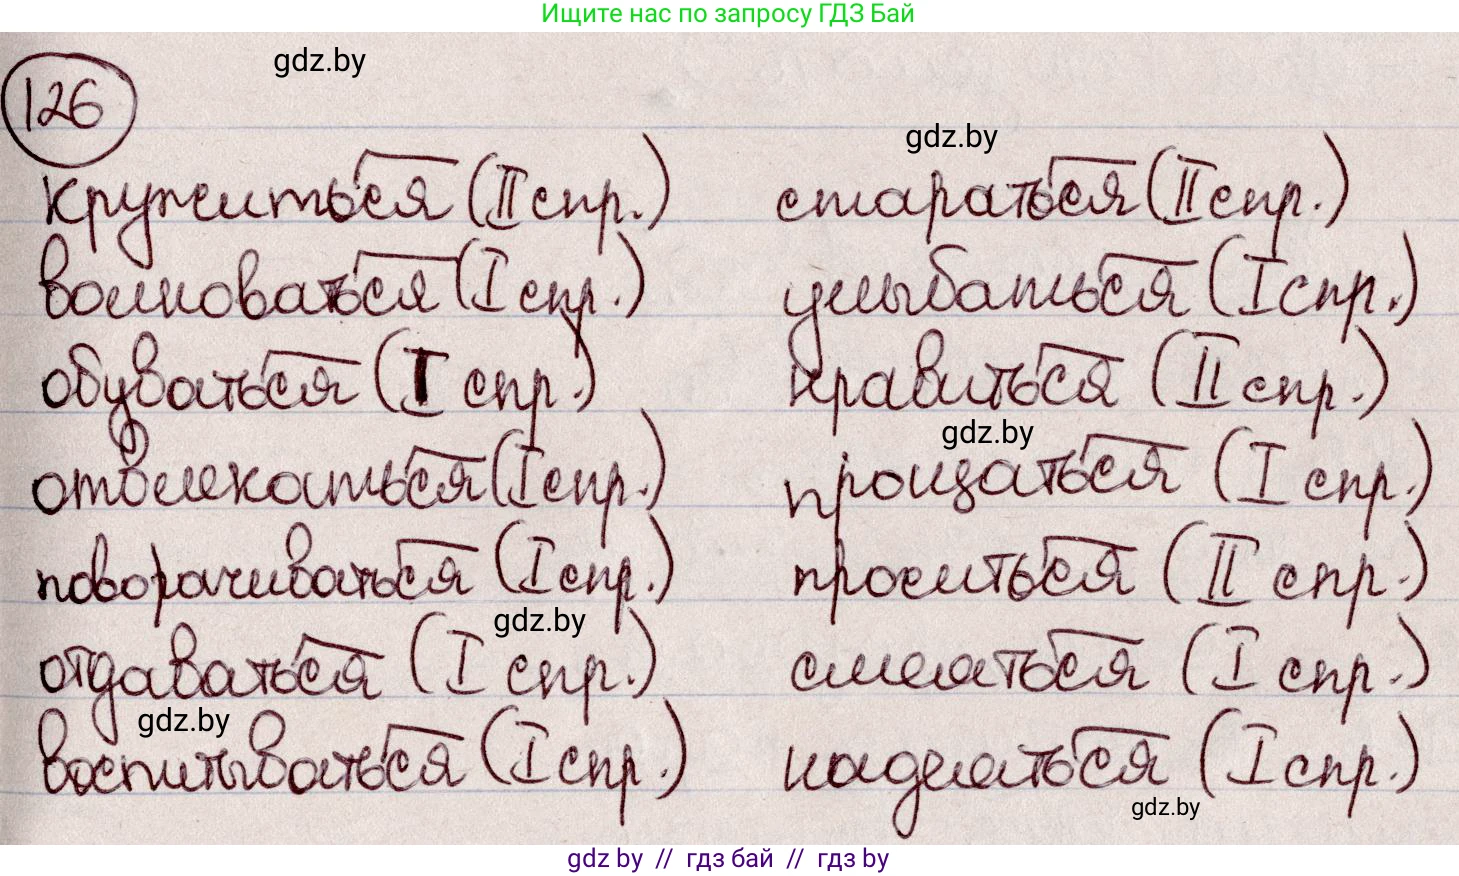 Ищите нас по запросу ГДЗ Бай
gdz.by
126
gdz.by
кружиться (II спр.) стараться (II спр.)
волноваться (I спр.) улыбаться (I спр.)
обуваться (I спр.) нравиться (II спр.)
gdz.by
отвлекаться (I спр.) прощаться (I спр.)
поворачиваться (I спр.) проситься (II спр.)
gdz.by
отдаваться (I спр.) смеяться (I спр.)
gdz.by
воспитываться (I спр.) надеяться (I спр.)
gdz.by
gdz by // гдз бай // гдз by